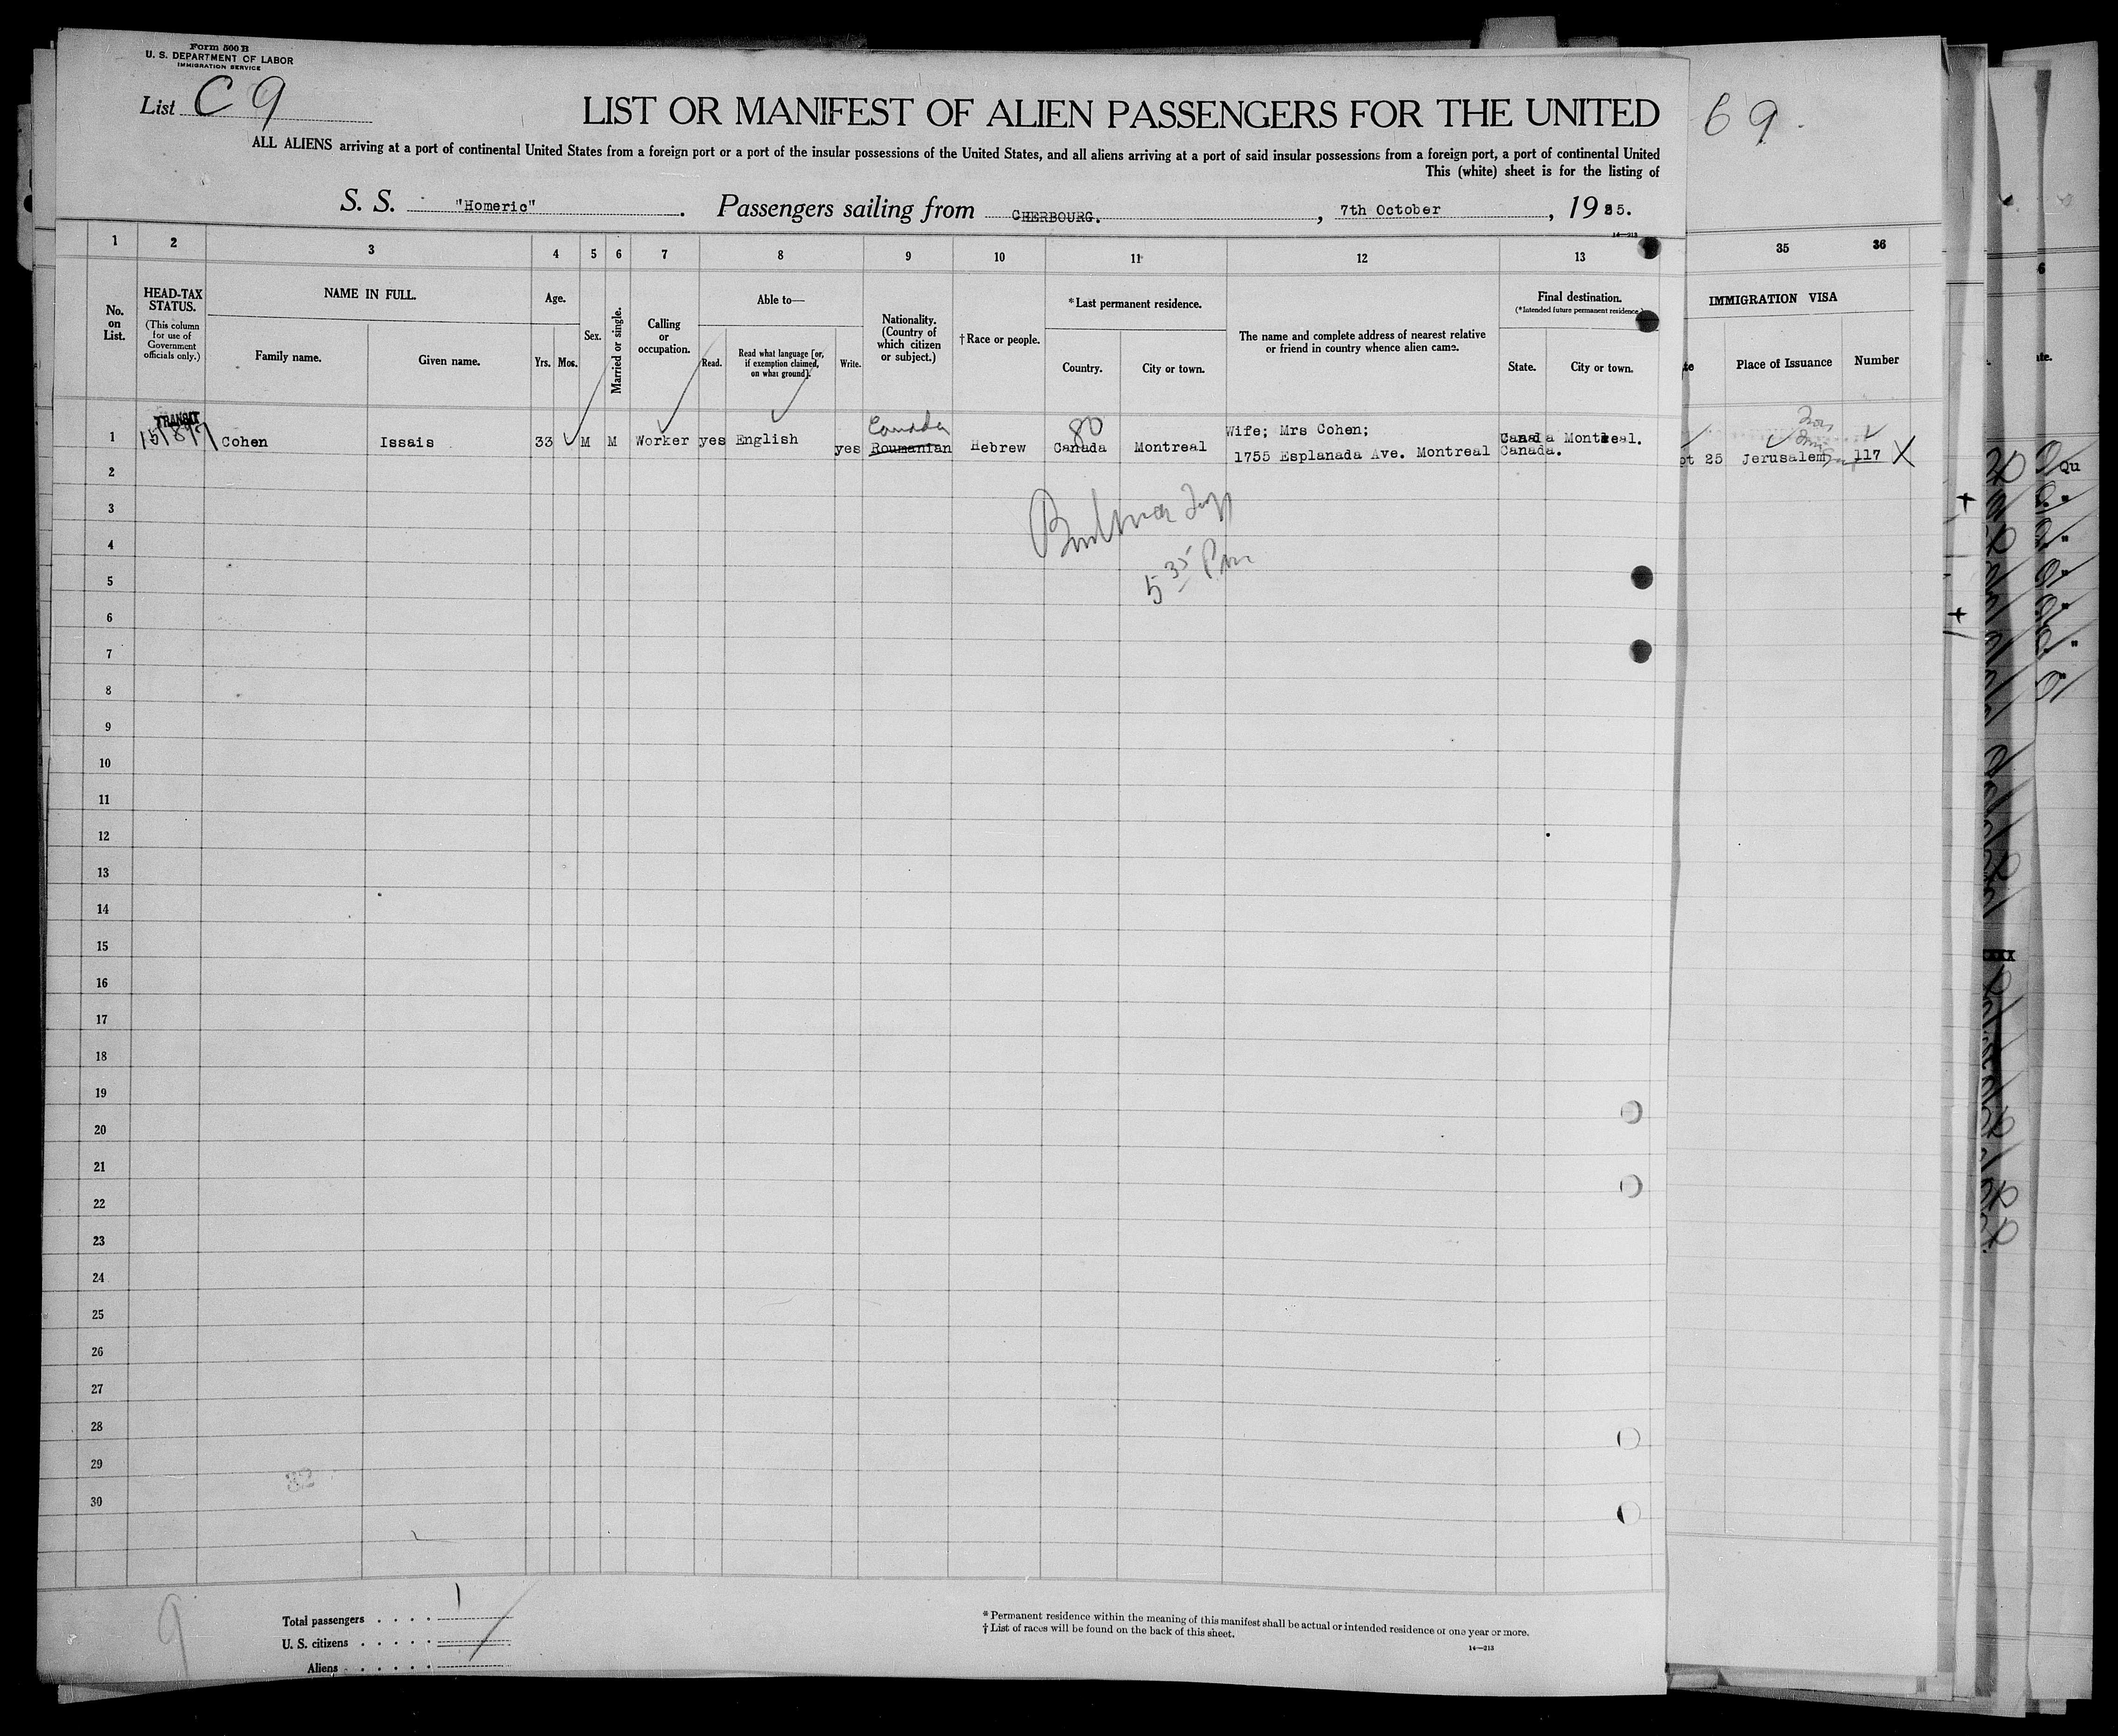 Form 500 B
U. S. DEPARTMENT OF LABOR
IMMIGRATION SERVICE
List C 9
LIST OR MANIFEST OF ALIEN PASSENGERS FOR THE UNITED
69.
ALL ALIENS arriving at a port of continental United States from a foreign port or a port of the insular possessions of the United States, and all aliens arriving at a port of said insular possessions from a foreign port, a port of continental United
This (white) sheet is for the listing of
S. S. "Homeric". Passengers sailing from CHERBOURG., 7th October, 1925.
14—213
1 2 3 4 5 6 7 8 9 10 11 12 13 35 36
No. on List.
HEAD-TAX STATUS.
(This column for use of Government officials only.)
NAME IN FULL.
Family name.
Given name.
Age.
Yrs. Mos.
Sex.
Married or single.
Calling or occupation.
Able to—
Read.
Read what language [or, if exemption claimed, on what ground].
Write.
Nationality. (Country of which citizen or subject.)
†Race or people.
*Last permanent residence.
Country.
City or town.
The name and complete address of nearest relative or friend in country whence alien came.
Final destination.
(*Intended future permanent residence.)
State.
City or town.
IMMIGRATION VISA
Place of Issuance
Number
TRANSIT
Canada
80
1 Cohen Issais 33 M M Worker yes English yes Roumanian Hebrew Canada Montreal Wife; Mrs Cohen; Canada Montreal.
1755 Esplanada Ave. Montreal Canada.
pt 25 Jerusalem 117 X
2
3
4
5 35 Pm
5
6
7
8
9
10
11
12
13
14
15
16
17
18
19
20
21
22
23
24
25
26
27
28
29
32
30
9
Total passengers . . . . 1
U. S. citizens . . . . .
Aliens . . . . . .
* Permanent residence within the meaning of this manifest shall be actual or intended residence of one year or more.
† List of races will be found on the back of this sheet.
14—213